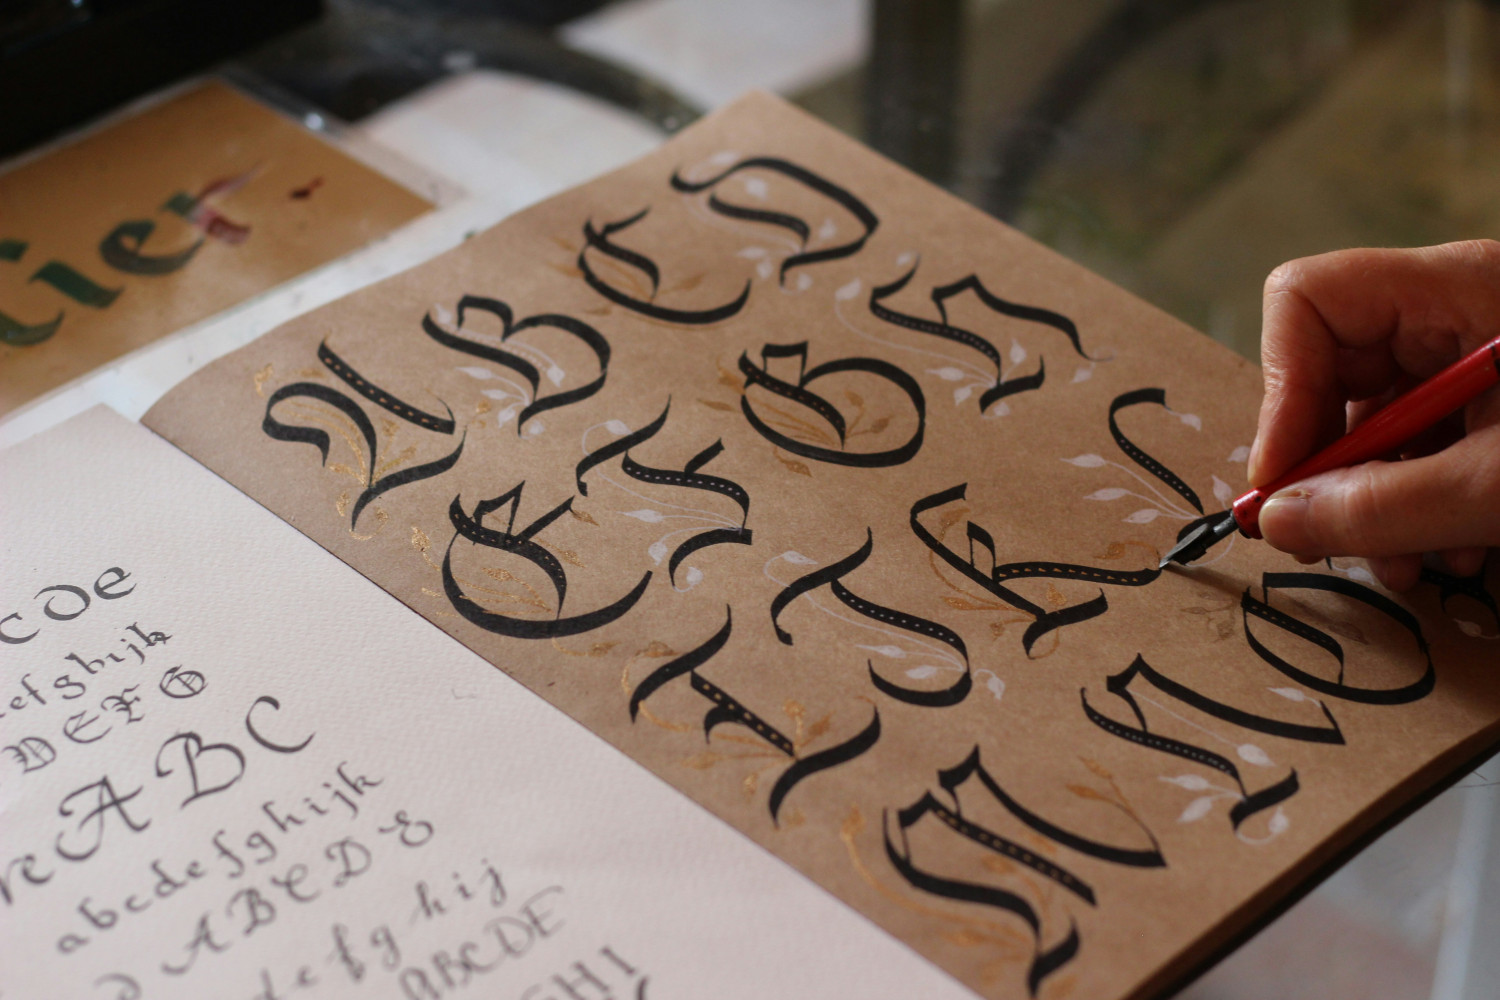 tier.
A B C D
E F G H
I J K L
M N O
c d e
efghijk
D E F G
re A B C
abcdefghijk
A B C D E
defghij
ABCDE
GHI